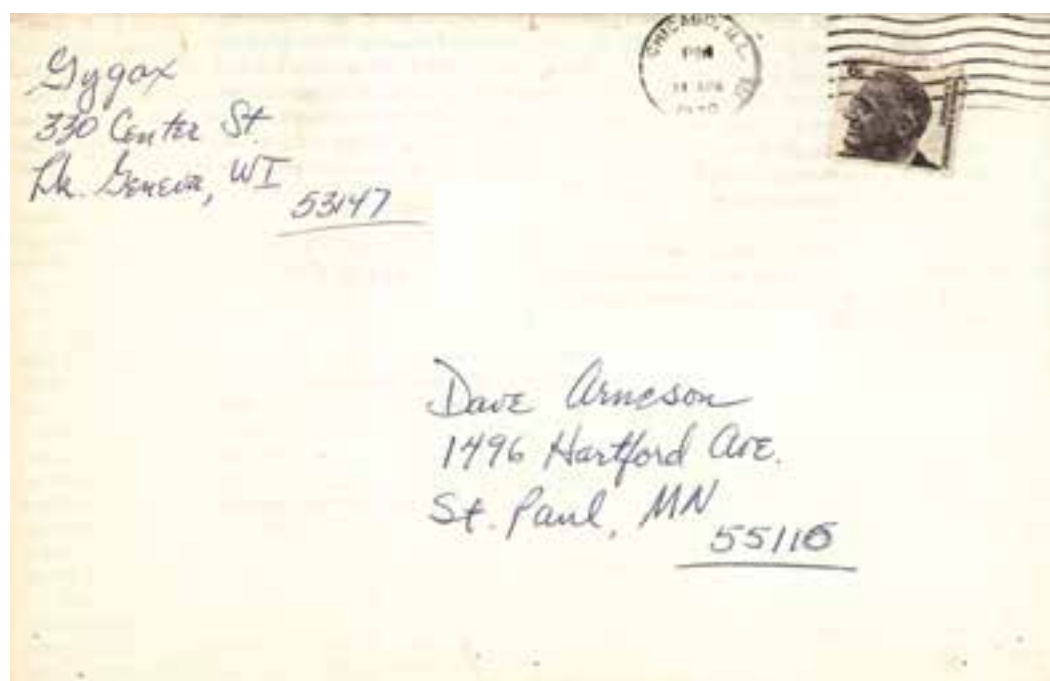 Gygax
330 Center St.
Lk. Geneva, WI
53147
CHICAGO, ILL
PM
11 APR
1970
6¢
Dave Arneson
1496 Hartford Ave.
St. Paul, MN
55116